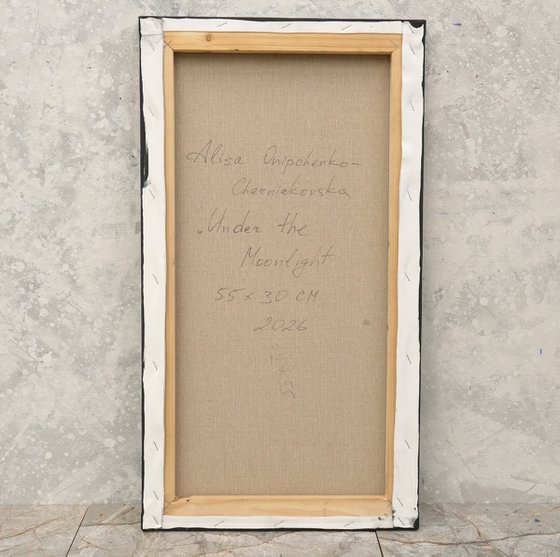 Alisa Onipchenko-
Cherniakovska
„Under the
Moonlight
55x30 CM
2026